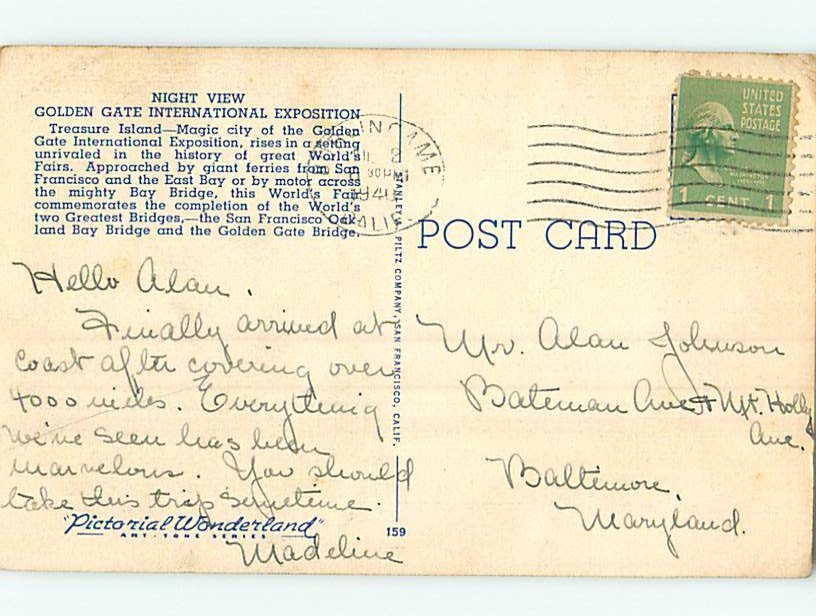 NIGHT VIEW
GOLDEN GATE INTERNATIONAL EXPOSITION
Treasure Island—Magic city of the Golden
Gate International Exposition, rises in a setting
unrivaled in the history of great World's
Fairs. Approached by giant ferries from San
Francisco and the East Bay or by motor across
the mighty Bay Bridge, this World's Fair
commemorates the completion of the World's
two Greatest Bridges,—the San Francisco Oak-
land Bay Bridge and the Golden Gate Bridge.
Hello Alan.
Finally arrived at
coast after covering over
4000 miles. Everything
we've seen has been
marvelous. You should
take this trip sometime.
Madeline
"Pictorial Wonderland"
ART-TONE SERIES
159
STANLEY A. PILTZ COMPANY, SAN FRANCISCO, CALIF.
INGAME
2
30 PM
1940
CALIF.
UNITED
STATES
POSTAGE
WASHINGTON
1 CENT 1
POST CARD
Mr. Alan Johnson
Bateman Ave & Mt. Holly
Ave.
Baltimore,
Maryland.